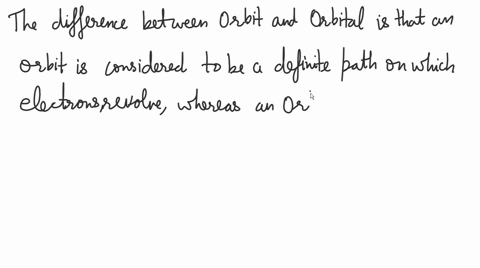 The difference between Orbit and Orbital is that an
orbit is considered to be a definite path on which
electrons, revolve, whereas an Or